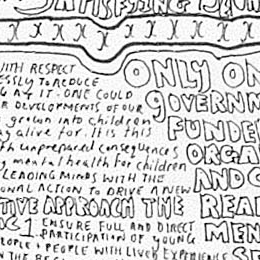 SATISFYING
WITH RESPECT
ESSLY TO REDUCE
G AT IT. ONE COULD
R DEVELOPMENTS OF OUR
grown into children
ng alive for. It is this
th unprepared consequences
g mental health for children
LEADING MINDS WITH THE
IONAL ACTION TO DRIVE A NEW
TIVE APPROACH THE
ENSURE FULL AND DIRECT
PARTICIPATION OF YOUNG
EOPLE + PEOPLE WITH LIVED EXPERIENCE
ONLY ON
GOVERNM
FUNDE
ORGA
AND C
REA
MEN